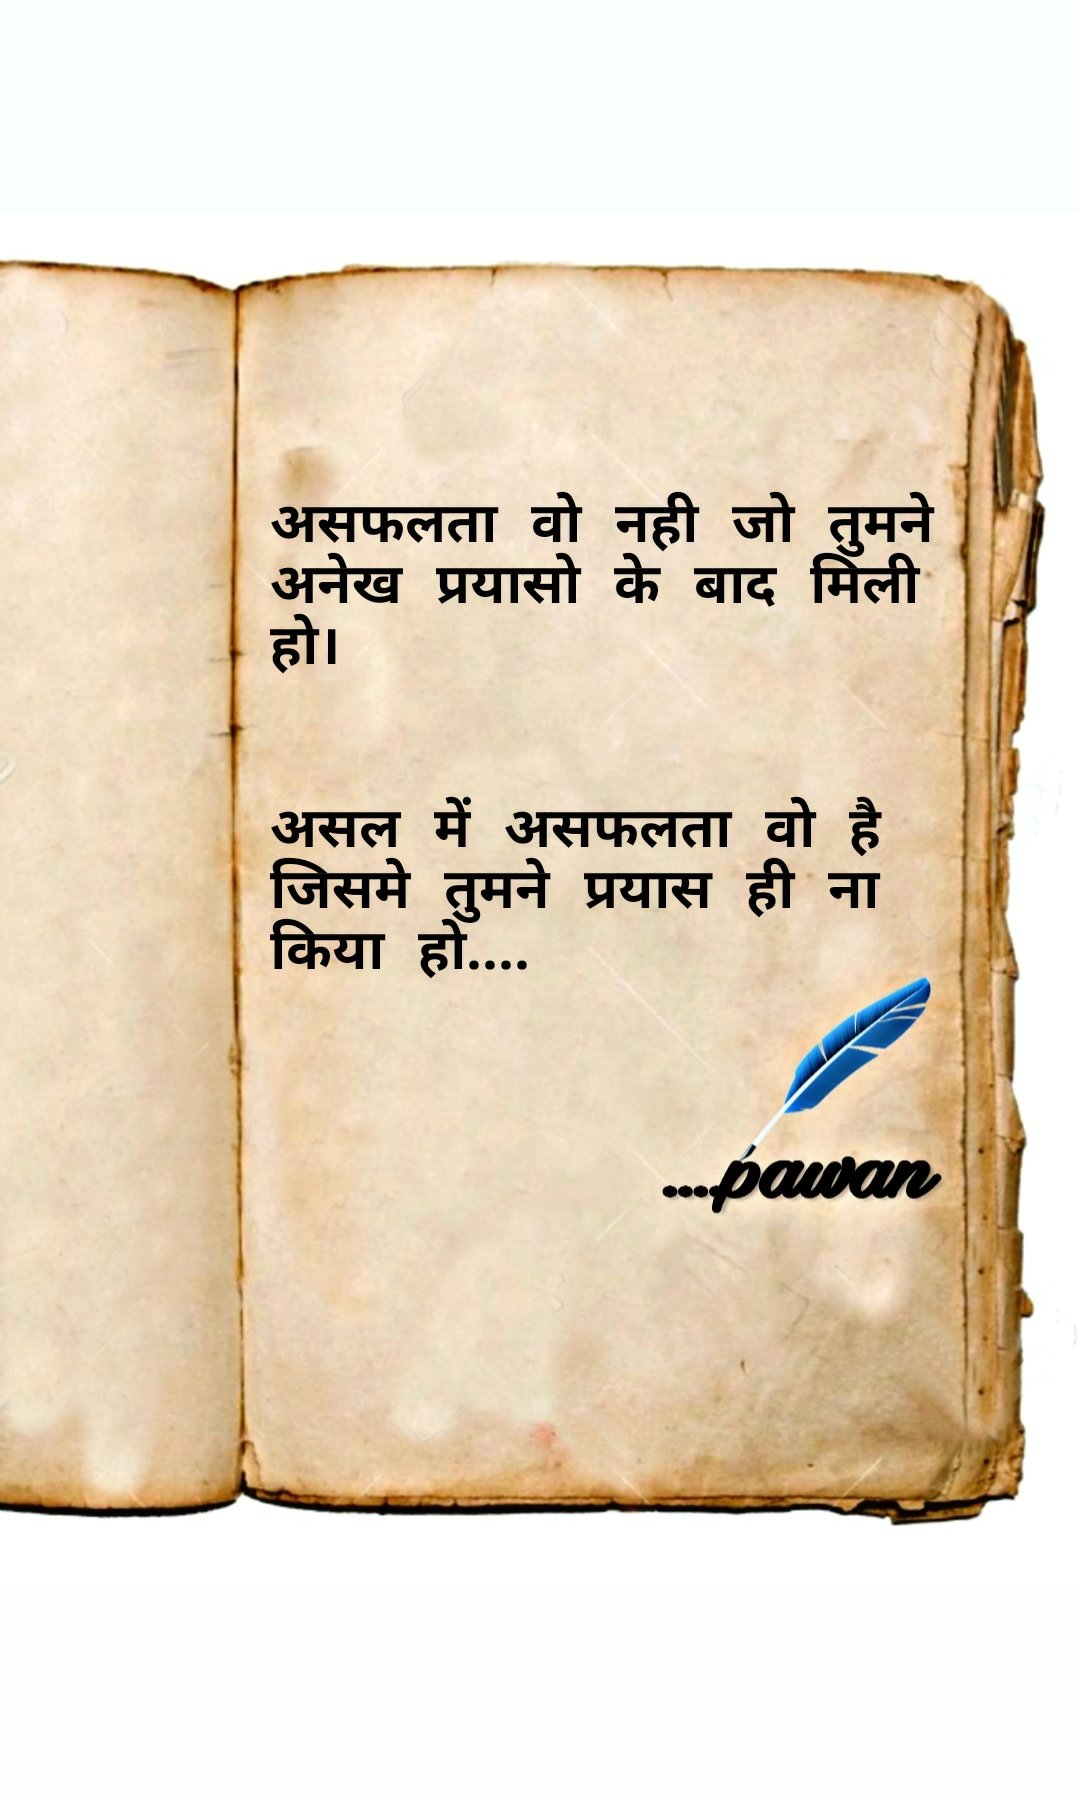 असफलता वो नही जो तुमने
अनेख प्रयासो के बाद मिली
हो।
असल में असफलता वो है
जिसमे तुमने प्रयास ही ना
किया हो....
....pawan